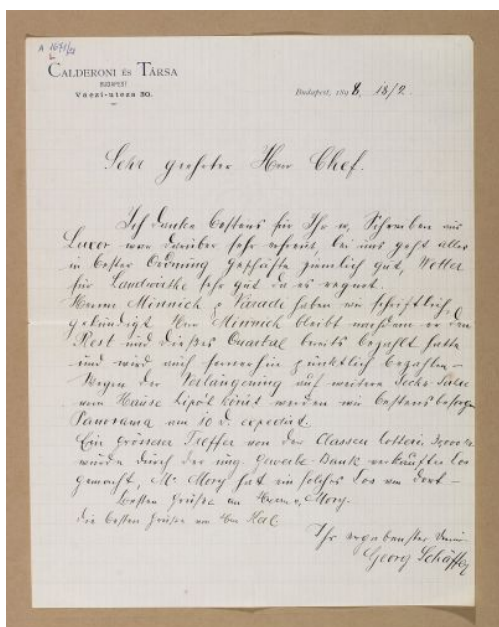 A 1671/12
2
CALDERONI ÉS TÁRSA
BUDAPEST
Váczi-utcza 30.
Budapest, 1898, 18/2.
Sehr geehrter Herr Chef.
Ich danke bestens für Ihr w. Schreiben aus
Luxor war darüber sehr erfreut, bei uns geht alles
in bester Ordnung Geschäfte ziemlich gut, Wetter
für Landwirthe sehr gut da es regnet.
Herrn Minnich & Váradi haben wir schriftlich
gekündigt Herr Minnich bleibt nachdem er den
Rest und dieses Quartal bereits bezahlt hatte
und wird auch fernerhin pünktlich bezahlen –
Wegen der Verlängerung auf weitere Sechs Jahre
vom Hause werden wir bestens besorgen
Panorama am 10 d. expedirt.
Ein grösserer Treffer von der Classen Lotterie,
wurde durch der ung. Gewerbe-Bank verkauften Los
gemacht, Mr. Mory hat ein solches Los von dort –
besten Grüsse an Herrn v. Mory.
die besten Grüsse von Hrn
Ihr ergebenster Diener
Georg Schäffer